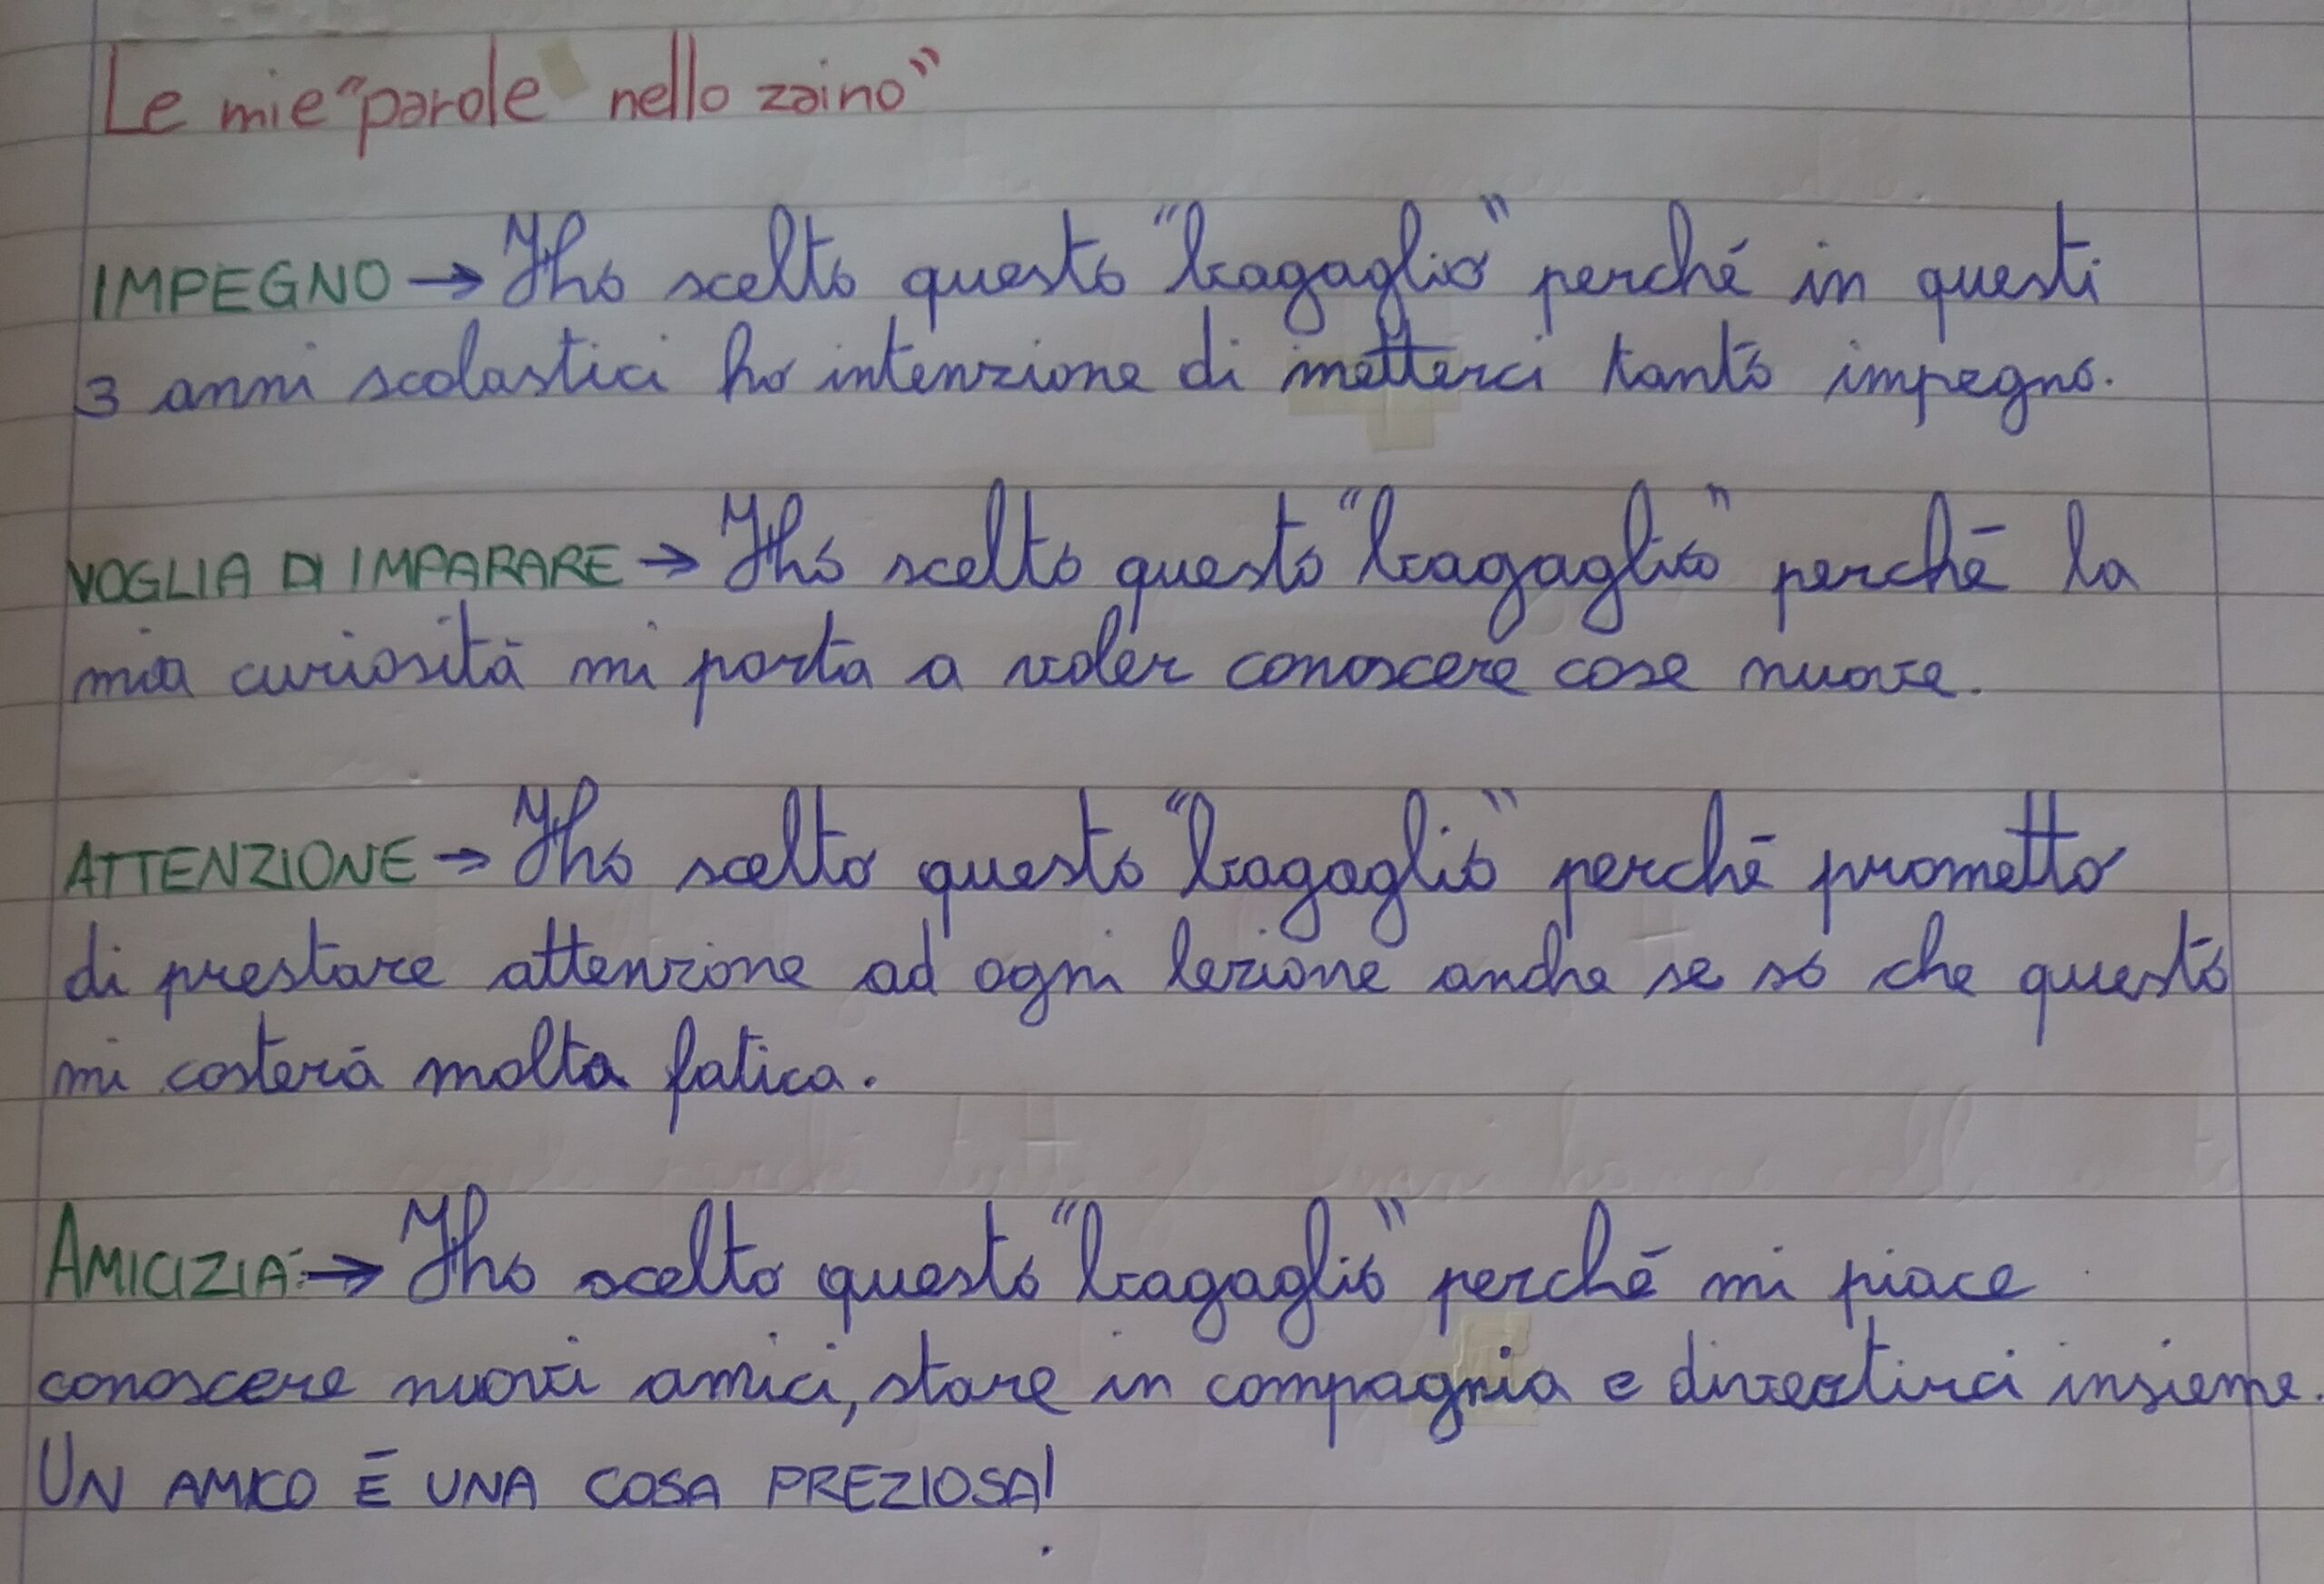 Le mie "parole nello zaino"
IMPEGNO → Ho scelto questo "bagaglio" perché in questi
3 anni scolastici ho intenzione di metterci tanto impegno.
VOGLIA DI IMPARARE → Ho scelto questo "bagaglio" perché la
mia curiosità mi porta a voler conoscere cose nuove.
ATTENZIONE → Ho scelto questo "bagaglio" perché prometto
di prestare attenzione ad ogni lezione anche se so che questo
mi costerà molta fatica.
AMICIZIA → Ho scelto questo "bagaglio" perché mi piace
conoscere nuovi amici, stare in compagnia e divertirci insieme.
UN AMICO È UNA COSA PREZIOSA!